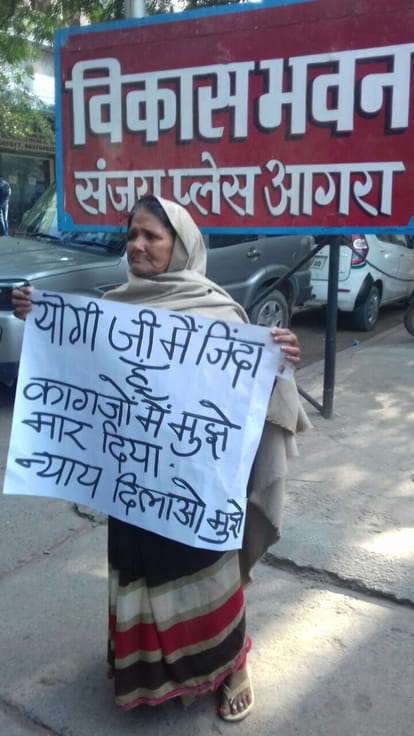 विकास भवन
संजय प्लेस आगरा
योगी जी मैं जिंदा
हूँ
कागजों में मुझे
मार दिया.
न्याय दिलाओ मुझे